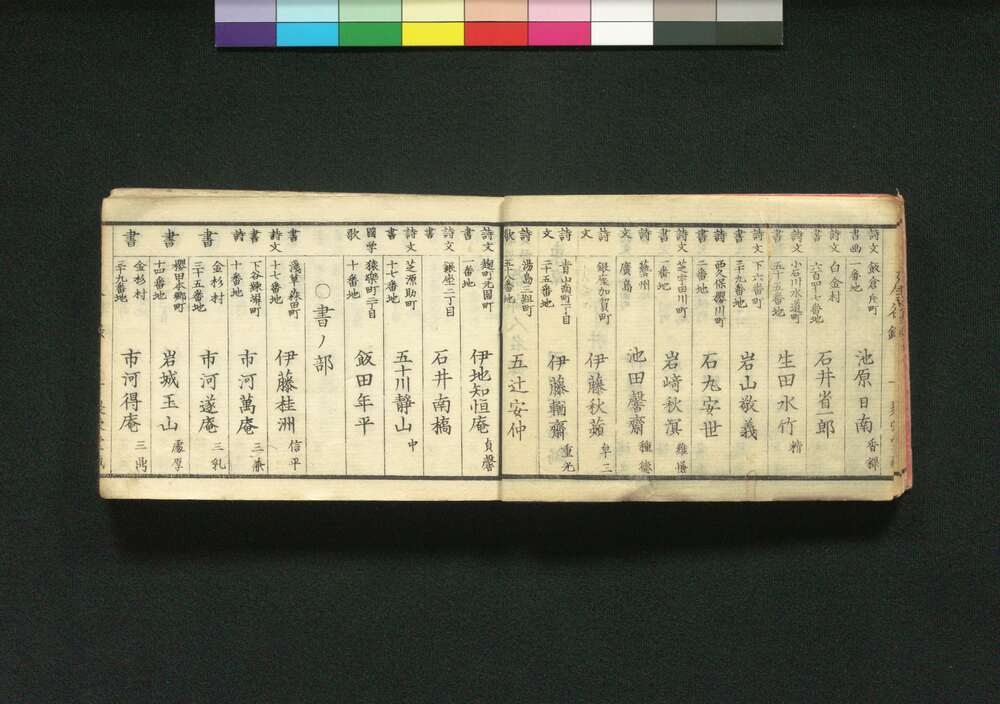 詩文 書画 飯倉片町 一番地 池原日南 香穉
詩文 書 白金村 六百四十七番地 石井省一郎
詩文 書 小石川水道町 五十五番地 生田水竹 精
詩文 書 下六番町 三十九番地 岩山敬義
詩文 書 西久保櫻川町 二番地 石丸安世
詩文 書 芝宇田川町 一番地 岩﨑秋溟 維慊
詩文 藝州 廣島 池田馨齋 種徳
詩文 銀座加賀町 伊藤秋蘋 卓二
詩文 青山南町一丁目 二十五番地 伊藤輶齋 重光
詩歌 湯島三組町 五十八番地 五辻安仲
詩文 書 麹町元園町 一番地 伊地知恒庵 貞馨
詩文 書 銀座二丁目 石井南橋
詩文 書 芝源助町 十七番地 五十川静山 中
國学 歌 猿樂町二丁目 十番地 飯田年平
○書ノ部
書 詩文 淺草森田町 十七番地 伊藤桂洲 信平
書 詩 下谷練塀町 十番地 市河萬庵 三兼
書 金杉村 三十五番地 市河遂庵 三乳
書 櫻田本郷町 十四番地 岩城玉山 處厚
書 金杉村 三十九番地 市河得庵 三鼎